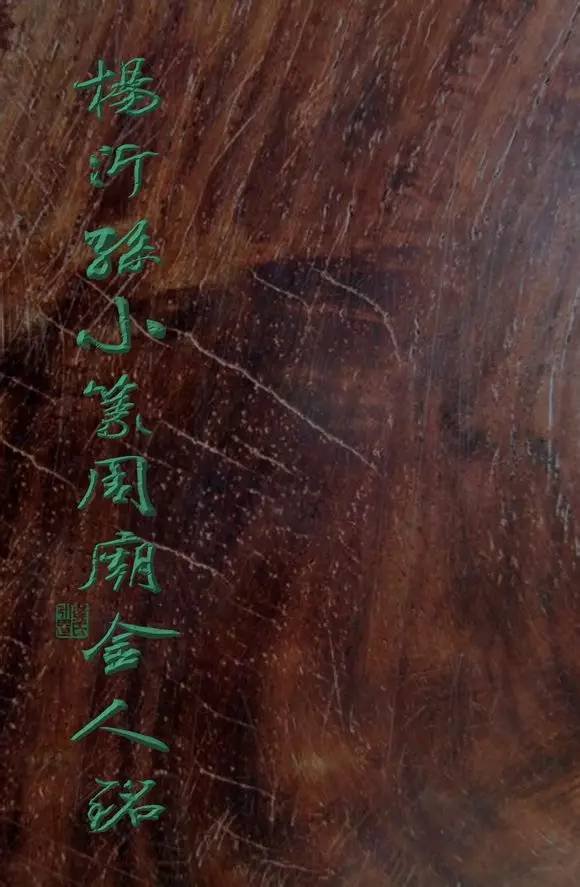 楊沂孫小篆周廟金人銘